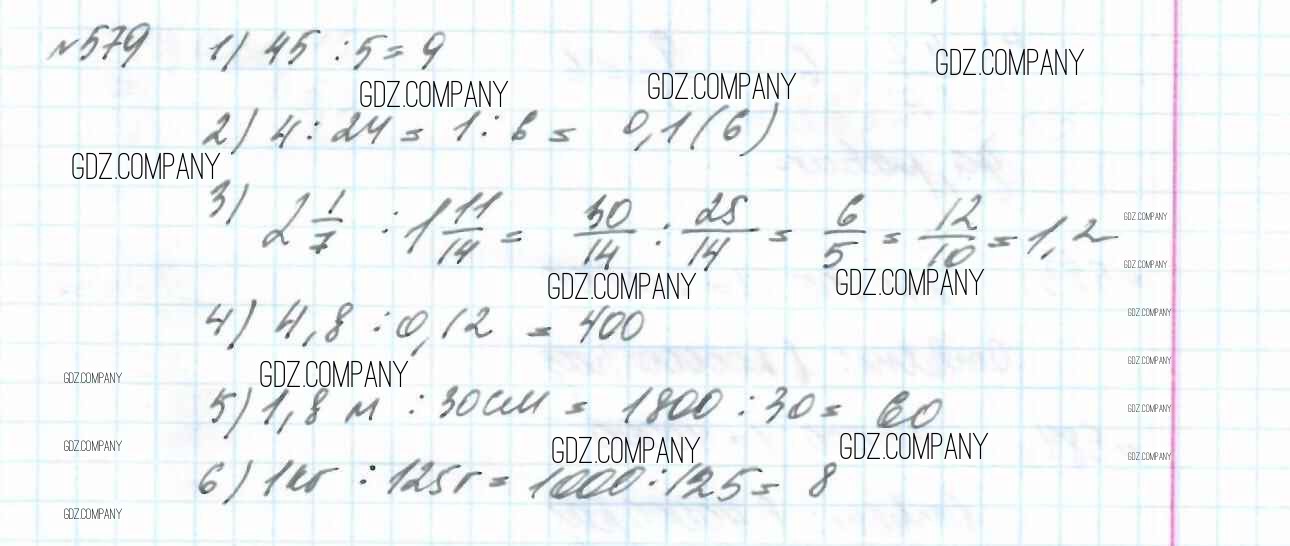 №579 1) 45 : 5 = 9
GDZ.COMPANY
GDZ.COMPANY
GDZ.COMPANY
2) 4 : 24 = 1 : 6 = 0,1(6)
GDZ.COMPANY
3) 2 1/7 : 1 11/14 = 30/14 : 25/14 = 6/5 = 12/10 = 1,2
GDZ.COMPANY
GDZ.COMPANY
GDZ.COMPANY
GDZ.COMPANY
GDZ.COMPANY
4) 4,8 : 0,12 = 400
GDZ.COMPANY
GDZ.COMPANY
GDZ.COMPANY
5) 1,8 м : 30 см = 1800 : 30 = 60
GDZ.COMPANY
GDZ.COMPANY
GDZ.COMPANY
GDZ.COMPANY
GDZ.COMPANY
6) 1 кг : 125 г = 1000 : 125 = 8
GDZ.COMPANY